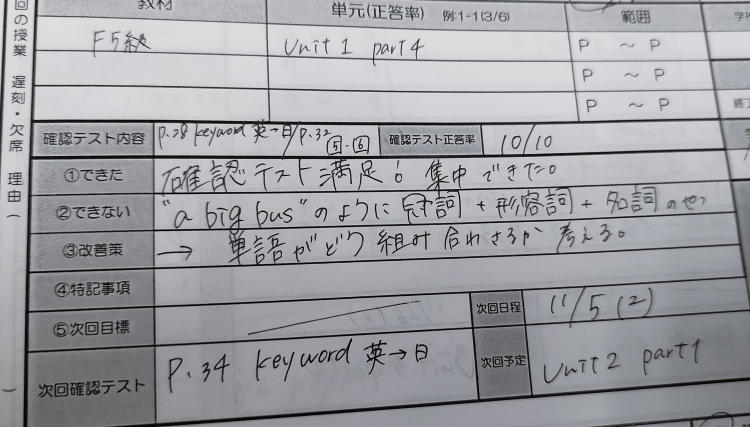 回の授業 遅刻・欠席 理由(
教材 単元(正答率) 例:1-1(3/6) 範囲
F5級 Unit 1 part 4 P ~ P
P ~ P
P ~ P
確認テスト内容 P.28 keyword 英→日/P.32 5・6 確認テスト正答率 10/10
①できた 確認テスト満足! 集中できた。
②できない "a big bus"のように冠詞+形容詞+名詞の
③改善策 → 単語がどう組み合わさるか考える。
④特記事項
⑤次回目標 次回日程 11/5 (2)
次回確認テスト P.34 keyword 英→日 次回予定 Unit 2 part 1